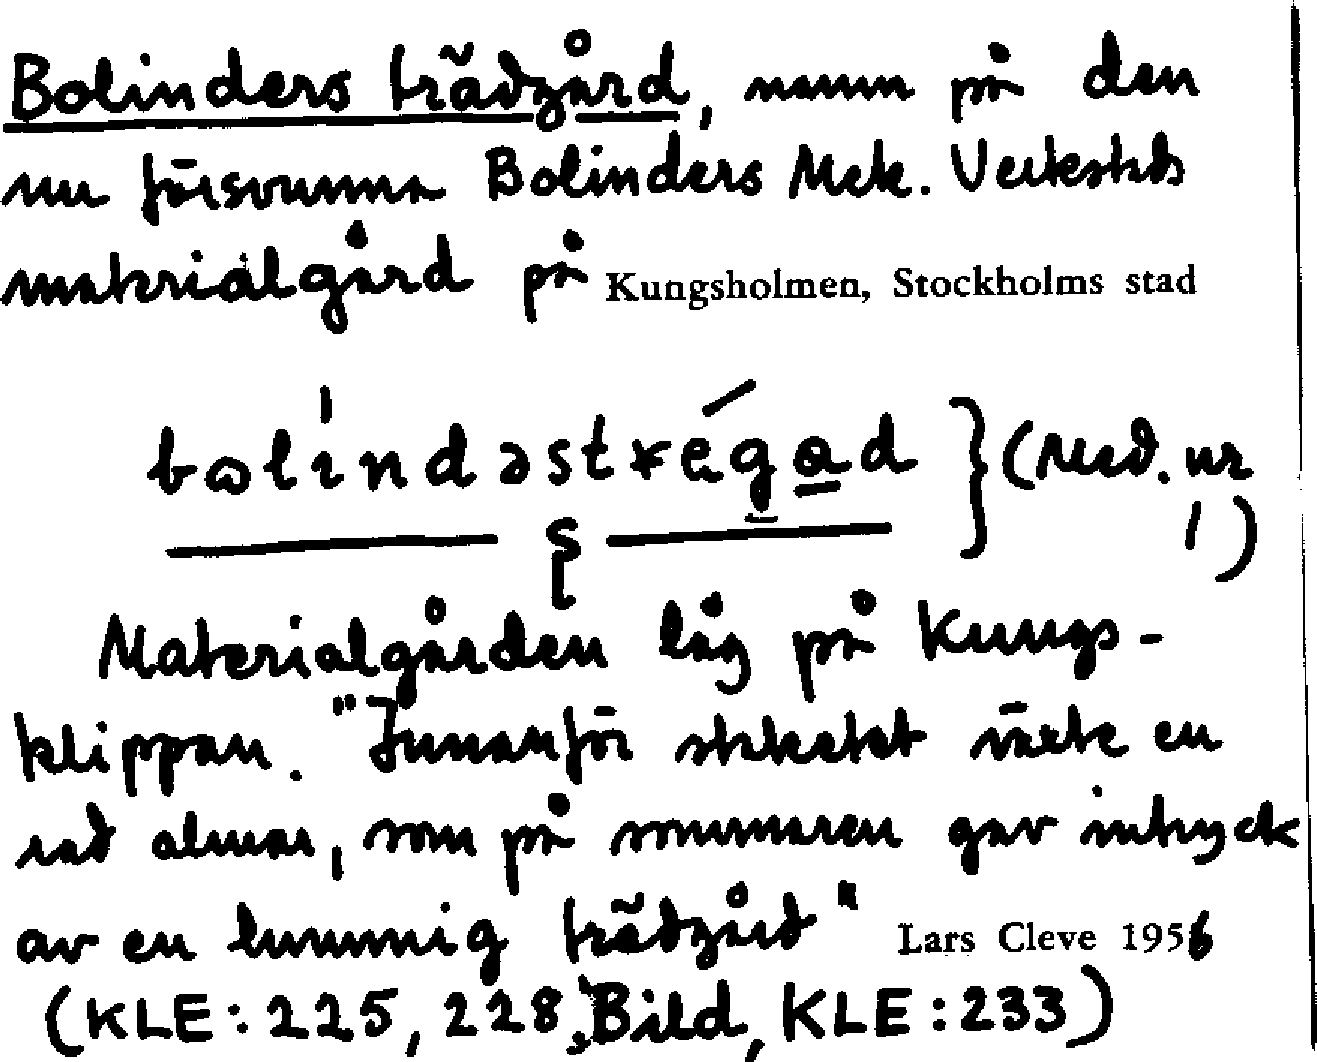 Bolinders trädgård, namn på den
nu försvunna Bolinders Mek. Verkstads
materialgård på Kungsholmen, Stockholms stad
(Med. nr
1)
Materialgården låg på Kungs-
klippan. "Innanför staketet växte en
rad almar, som på sommaren gav intryck
av en lummig trädgård" Lars Cleve 1956
(KLE: 225, 228, Bild, KLE: 233)